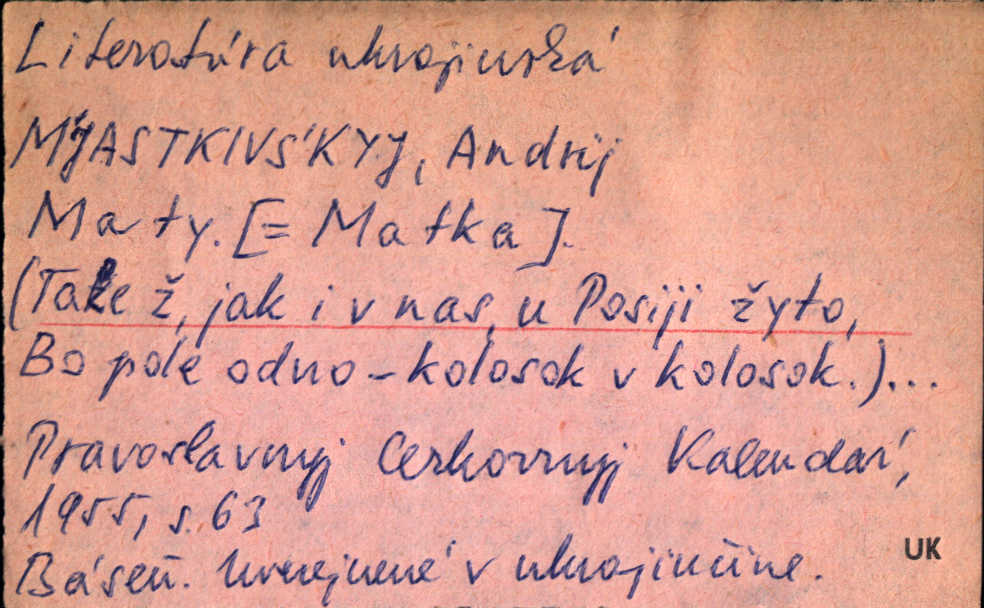 Literatúra ukrajinská
MJASTKIVS'KYJ, Andrij
Maty. [= Matka].
(Take ž, jak i v nas, u Rosiji žyto,
Bo pole odno - kolosok v kolosok.)...
Pravoslavnyj Cerkovnyj Kalendar',
1955, s. 63
Báseň. Uverejnené v ukrajinčine.
UK